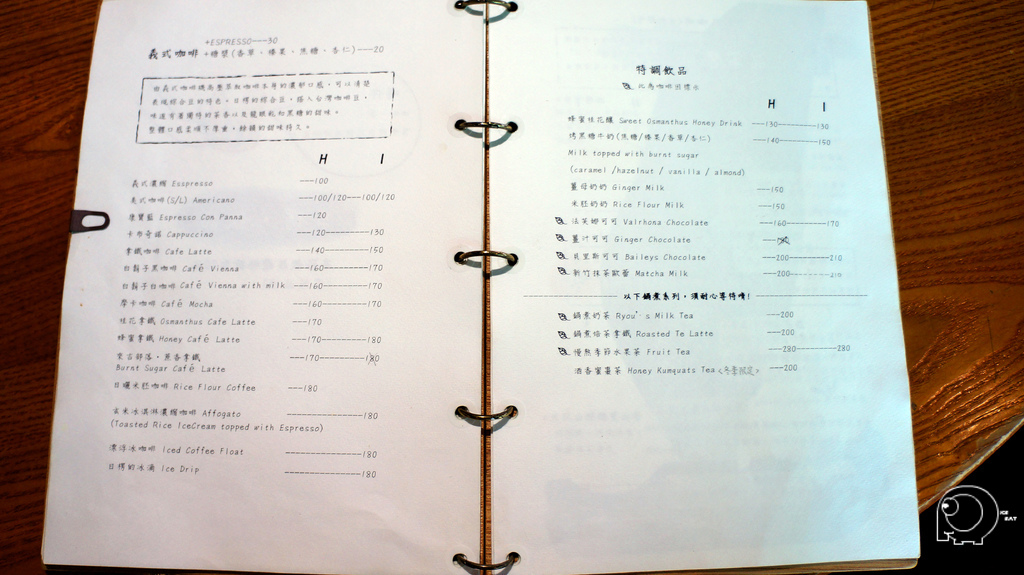 +ESPRESSO---30
義式咖啡 +糖漿(香草、榛果、焦糖、杏仁)---20
由義式咖啡機高壓萃取咖啡本身的濃郁口感,可以清楚
表現綜合豆的特色。日楞的綜合豆,搭入台灣咖啡豆,
味道有著獨特的茶香以及龍眼乾和黑糖的甜味。
整體口感柔順不厚重,餘韻的甜味持久。
H I
義式濃縮 Esspresso ---100
美式咖啡(S/L) Americano ---100/120---100/120
康寶藍 Espresso Con Panna ---120
卡布奇諾 Cappuccino ---120---------130
拿鐵咖啡 Cafe Latte ---140---------150
白鬍子黑咖啡 Café Vienna ---160---------170
白鬍子白咖啡 Café Vienna with milk ---160---------170
摩卡咖啡 Café Mocha ---160---------170
桂花拿鐵 Osmanthus Cafe Latte ---170
蜂蜜拿鐵 Honey Café Latte ---170---------180
來吉部落・蔗香拿鐵 ---170---------180
Burnt Sugar Café Latte
日曬米胚咖啡 Rice Flour Coffee ---180
玄米冰淇淋濃縮咖啡 Affogato ----------------180
(Toasted Rice IceCream topped with Espresso)
漂浮冰咖啡 Iced Coffee Float ----------------180
日楞的冰滴 Ice Drip ----------------180
特調飲品
比為咖啡因標示
H I
蜂蜜桂花釀 Sweet Osmanthus Honey Drink ---130---------130
烤黑糖牛奶(焦糖/榛果/香草/杏仁) ---140---------150
Milk topped with burnt sugar
(caramel /hazelnut / vanilla / almond)
薑母奶奶 Ginger Milk ---150
米胚奶奶 Rice Flour Milk ---150
法芙娜可可 Valrhona Chocolate ---160---------170
薑汁可可 Ginger Chocolate
貝里斯可可 Baileys Chocolate ---200---------210
新竹抹茶歐蕾 Matcha Milk ---200---------210
以下鍋煮系列,須耐心等待唷!
鍋煮奶茶 Ryou's Milk Tea ---200
鍋煮焙茶拿鐵 Roasted Te Latte ---200
慢熬季節水果茶 Fruit Tea ---280---------280
酒香蜜棗茶 Honey Kumquats Tea <冬季限定> ---200
ICE
EAT